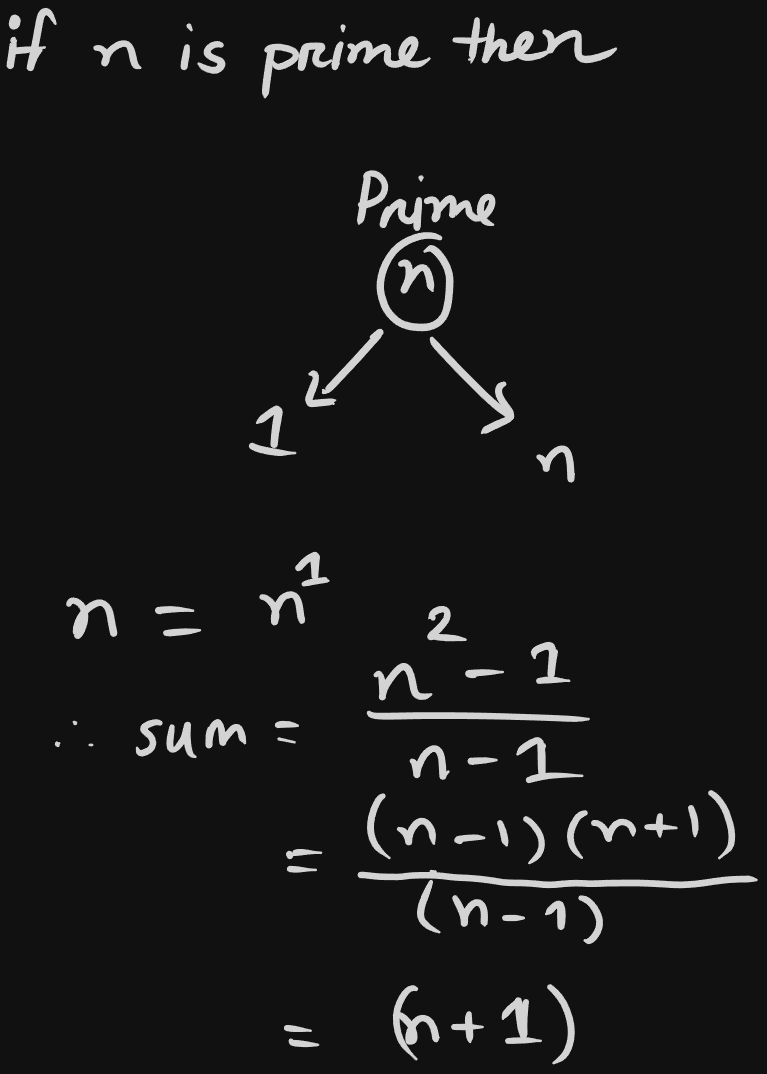 if n is prime then
Prime
n
1
n
n = n¹
∴ sum = n² - 1 / n - 1
= (n-1) (n+1) / (n-1)
= (n+1)